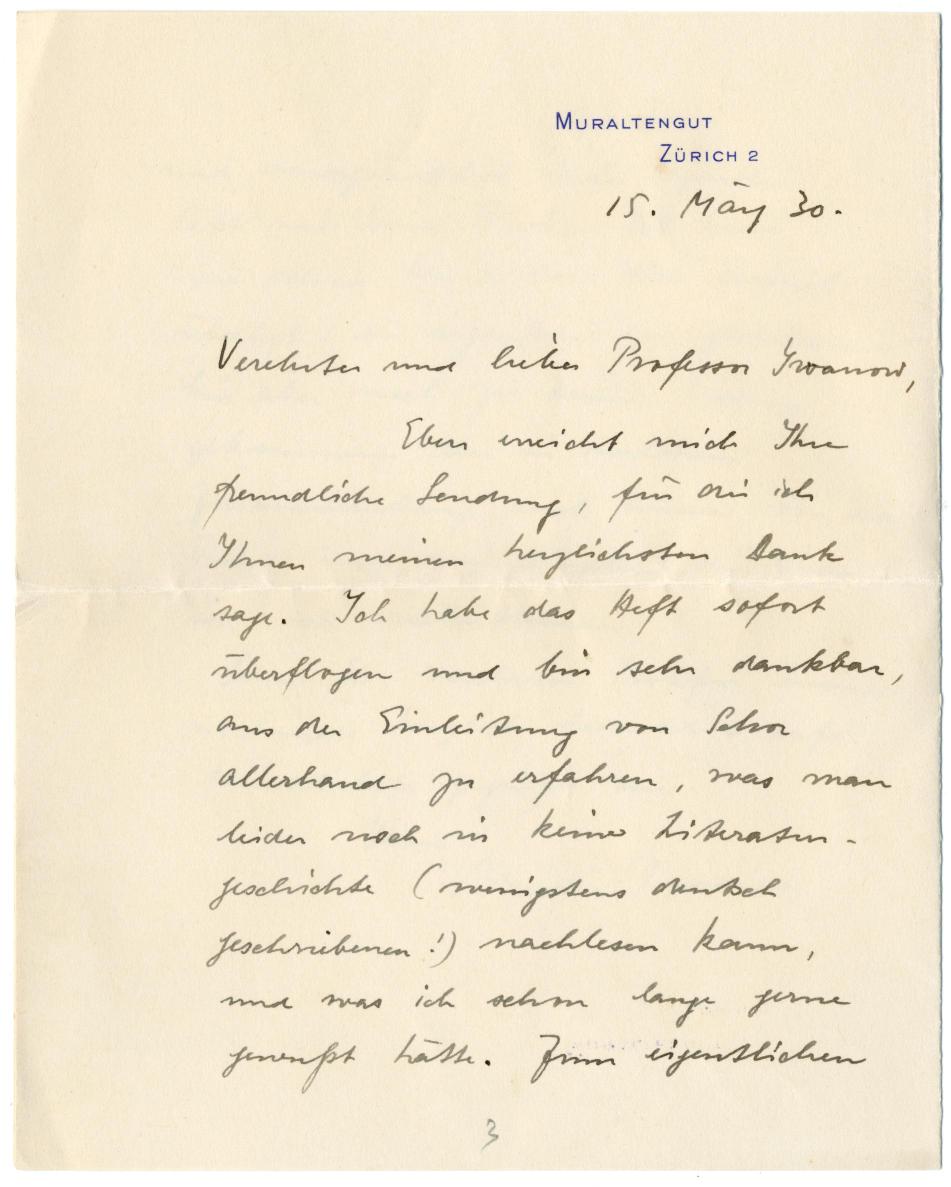 MURALTENGUT
ZÜRICH 2
15. März 30.
Verehrter und lieber Professor Iwanow,
Eben erreicht mich Ihre
freundliche Sendung, für die ich
Ihnen meinen herzlichsten Dank
sage. Ich habe das Heft sofort
überflogen und bin sehr dankbar,
aus der Einleitung von Schor
allerhand zu erfahren, was man
leider noch in keiner Literatur-
geschichte (wenigstens deutsch
geschriebenen!) nachlesen kann,
und was ich schon lange gerne
gewußt hätte. Zum eigentlichen
3